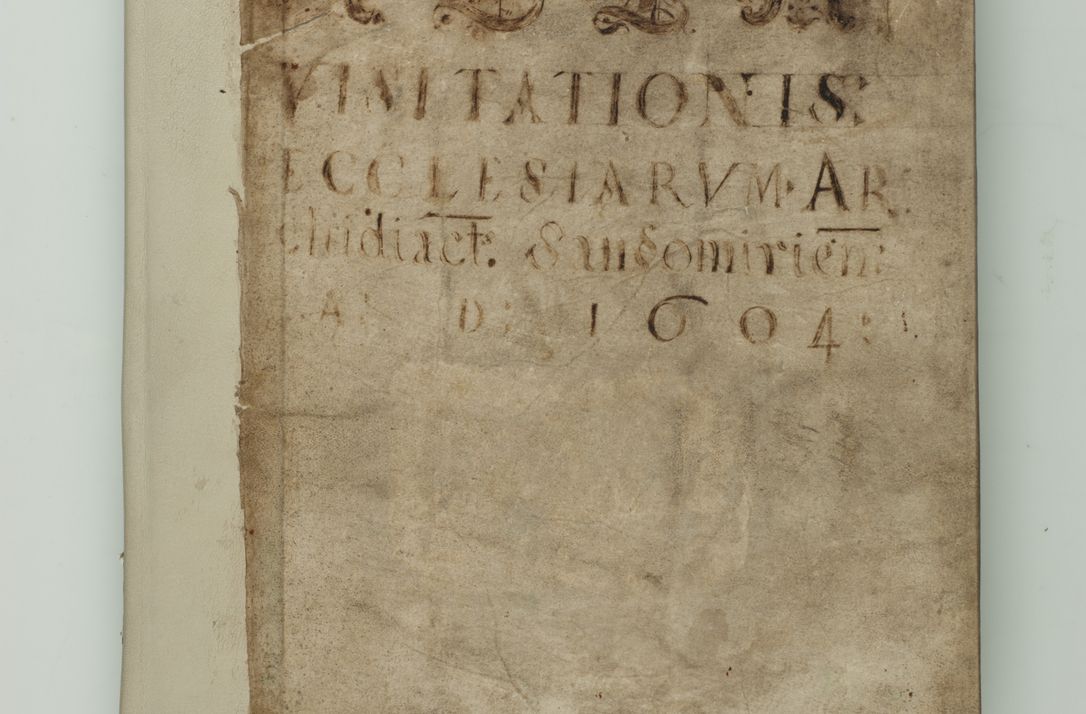 VISITATIONIS
ECCLESIARVM AR
chidiact: Sandomirien:
A: D: 1604: